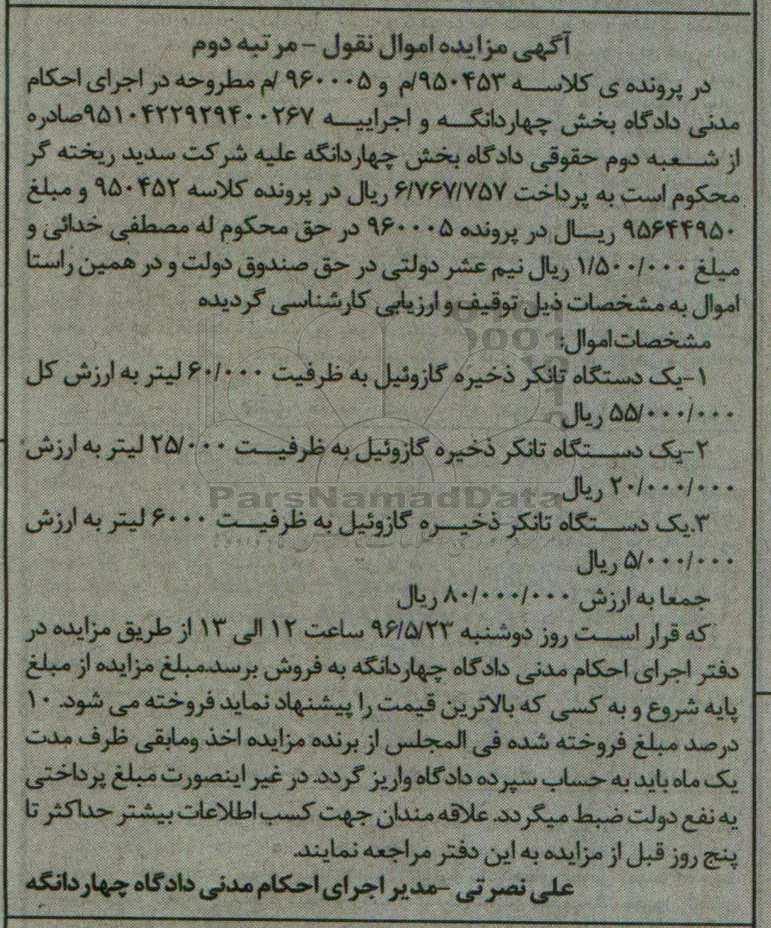 آگهی مزایده اموال نقول - مرتبه دوم
در پرونده ی کلاسه ۹۵۰۴۵۳/م و ۹۶۰۰۰۵ /م مطروحه در اجرای احکام
مدنی دادگاه بخش چهاردانگه و اجراییه ۹۵۱۰۴۲۲۹۲۹۴۰۰۲۶۷صادره
از شعبه دوم حقوقی دادگاه بخش چهاردانگه علیه شرکت سدید ریخته گر
محکوم است به پرداخت ۶/۷۶۷/۷۵۷ ریال در پرونده کلاسه ۹۵۰۴۵۲ و مبلغ
۹۵۶۴۴۹۵۰ ریال در پرونده ۹۶۰۰۰۵ در حق محکوم له مصطفی خدائی و
مبلغ ۱/۵۰۰/۰۰۰ ریال نیم عشر دولتی در حق صندوق دولت و در همین راستا
اموال به مشخصات ذیل توقیف و ارزیابی کارشناسی گردیده
مشخصات اموال:
۱-یک دستگاه تانکر ذخیره گازوئیل به ظرفیت ۶۰/۰۰۰ لیتر به ارزش کل
۵۵/۰۰۰/۰۰۰ ریال
۲-یک دستگاه تانکر ذخیره گازوئیل به ظرفیت ۲۵/۰۰۰ لیتر به ارزش
۲۰/۰۰۰/۰۰۰ ریال
ParsNamadData
۳.یک دستگاه تانکر ذخیره گازوئیل به ظرفیت ۶۰۰۰ لیتر به ارزش
۵/۰۰۰/۰۰۰ ریال
جمعا به ارزش ۸۰/۰۰۰/۰۰۰ ریال
که قرار است روز دوشنبه ۹۶/۵/۲۳ ساعت ۱۲ الی ۱۳ از طریق مزایده در
دفتر اجرای احکام مدنی دادگاه چهاردانگه به فروش برسد.مبلغ مزایده از مبلغ
پایه شروع و به کسی که بالاترین قیمت را پیشنهاد نماید فروخته می شود. ۱۰
درصد مبلغ فروخته شده فی المجلس از برنده مزایده اخذ ومابقی ظرف مدت
یک ماه باید به حساب سپرده دادگاه واریز گردد. در غیر اینصورت مبلغ پرداختی
به نفع دولت ضبط میگردد. علاقه مندان جهت کسب اطلاعات بیشتر حداکثر تا
پنج روز قبل از مزایده به این دفتر مراجعه نمایند.
علی نصرتی -مدیر اجرای احکام مدنی دادگاه چهاردانگه